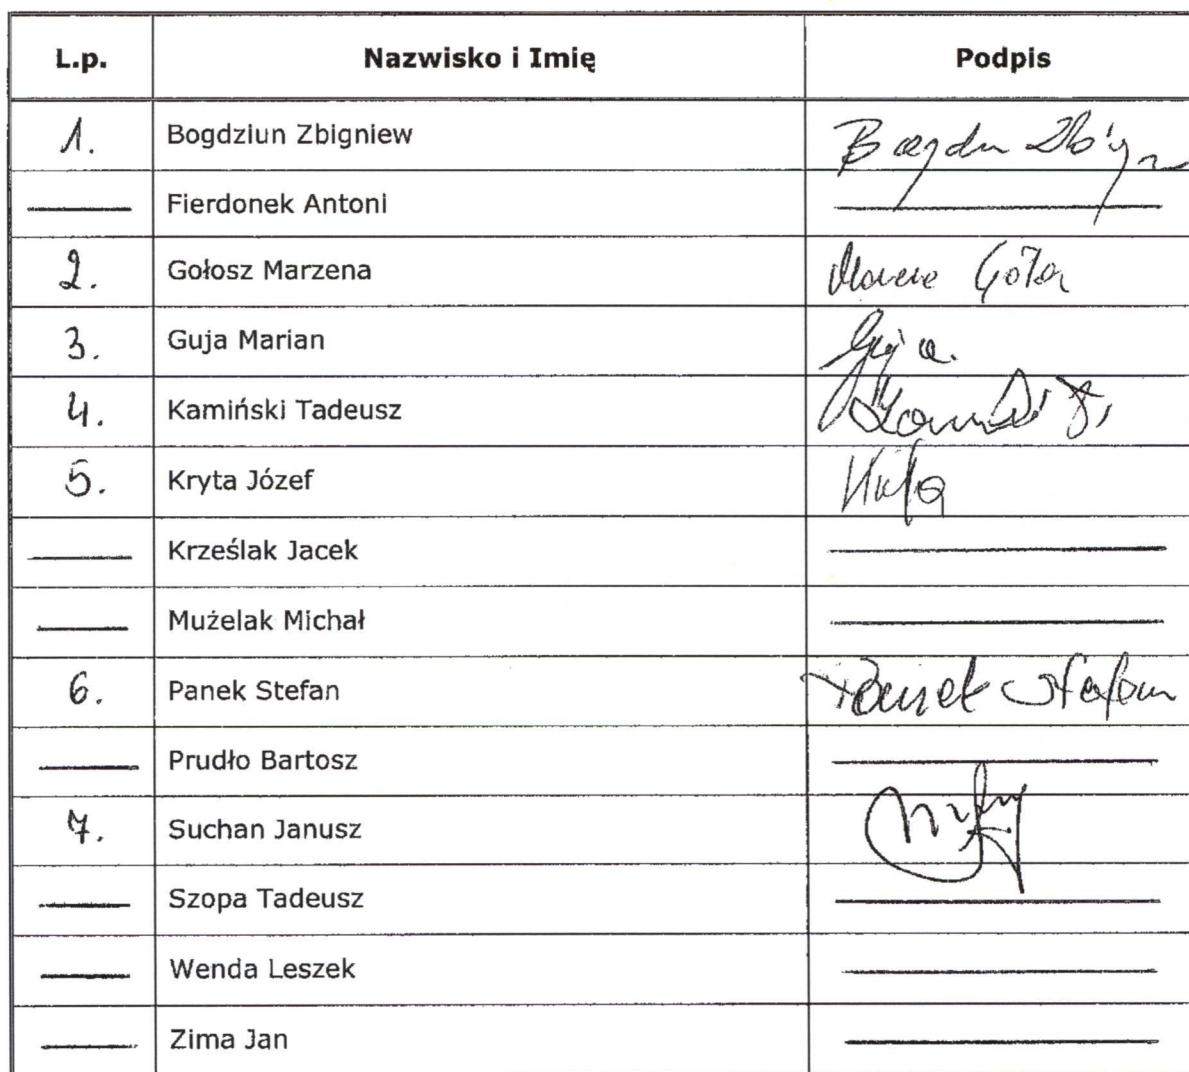 L.p. Nazwisko i Imię Podpis
1. Bogdziun Zbigniew
Fierdonek Antoni
2. Gołosz Marzena
3. Guja Marian Guja
4. Kamiński Tadeusz
5. Kryta Józef
Krześlak Jacek
Mużelak Michał
6. Panek Stefan Panek Stefan
Prudło Bartosz
7. Suchan Janusz
Szopa Tadeusz
Wenda Leszek
Zima Jan